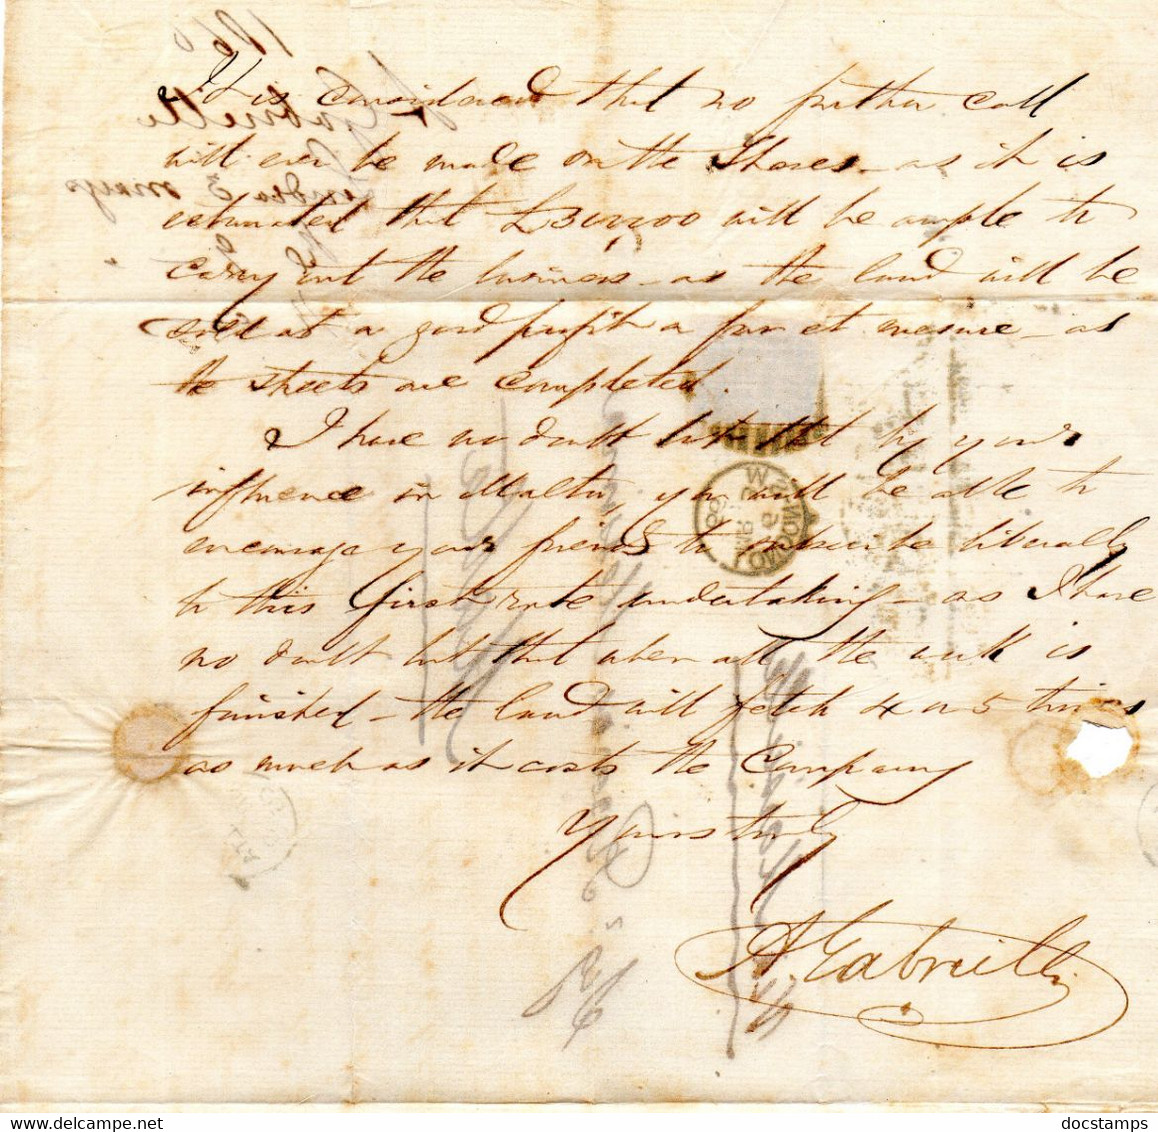 It is considered that no further call
will ever be made on the Shares - as it is
estimated that £300200 will be ample to
carry out the business - as the land will be
sold at a good profit a fur et mesure - as
the streets are completed.
I have no doubt but that by your
influence in Malta you will be able to
encourage your friends to subscribe liberally
to this first rate undertaking - as I have
no doubt but that when all the work is
finished - the land will fetch 4 or 5 times
as much as it costs the Company
Yours truly
A. Gabrielli
LONDON-S.W
docstamps